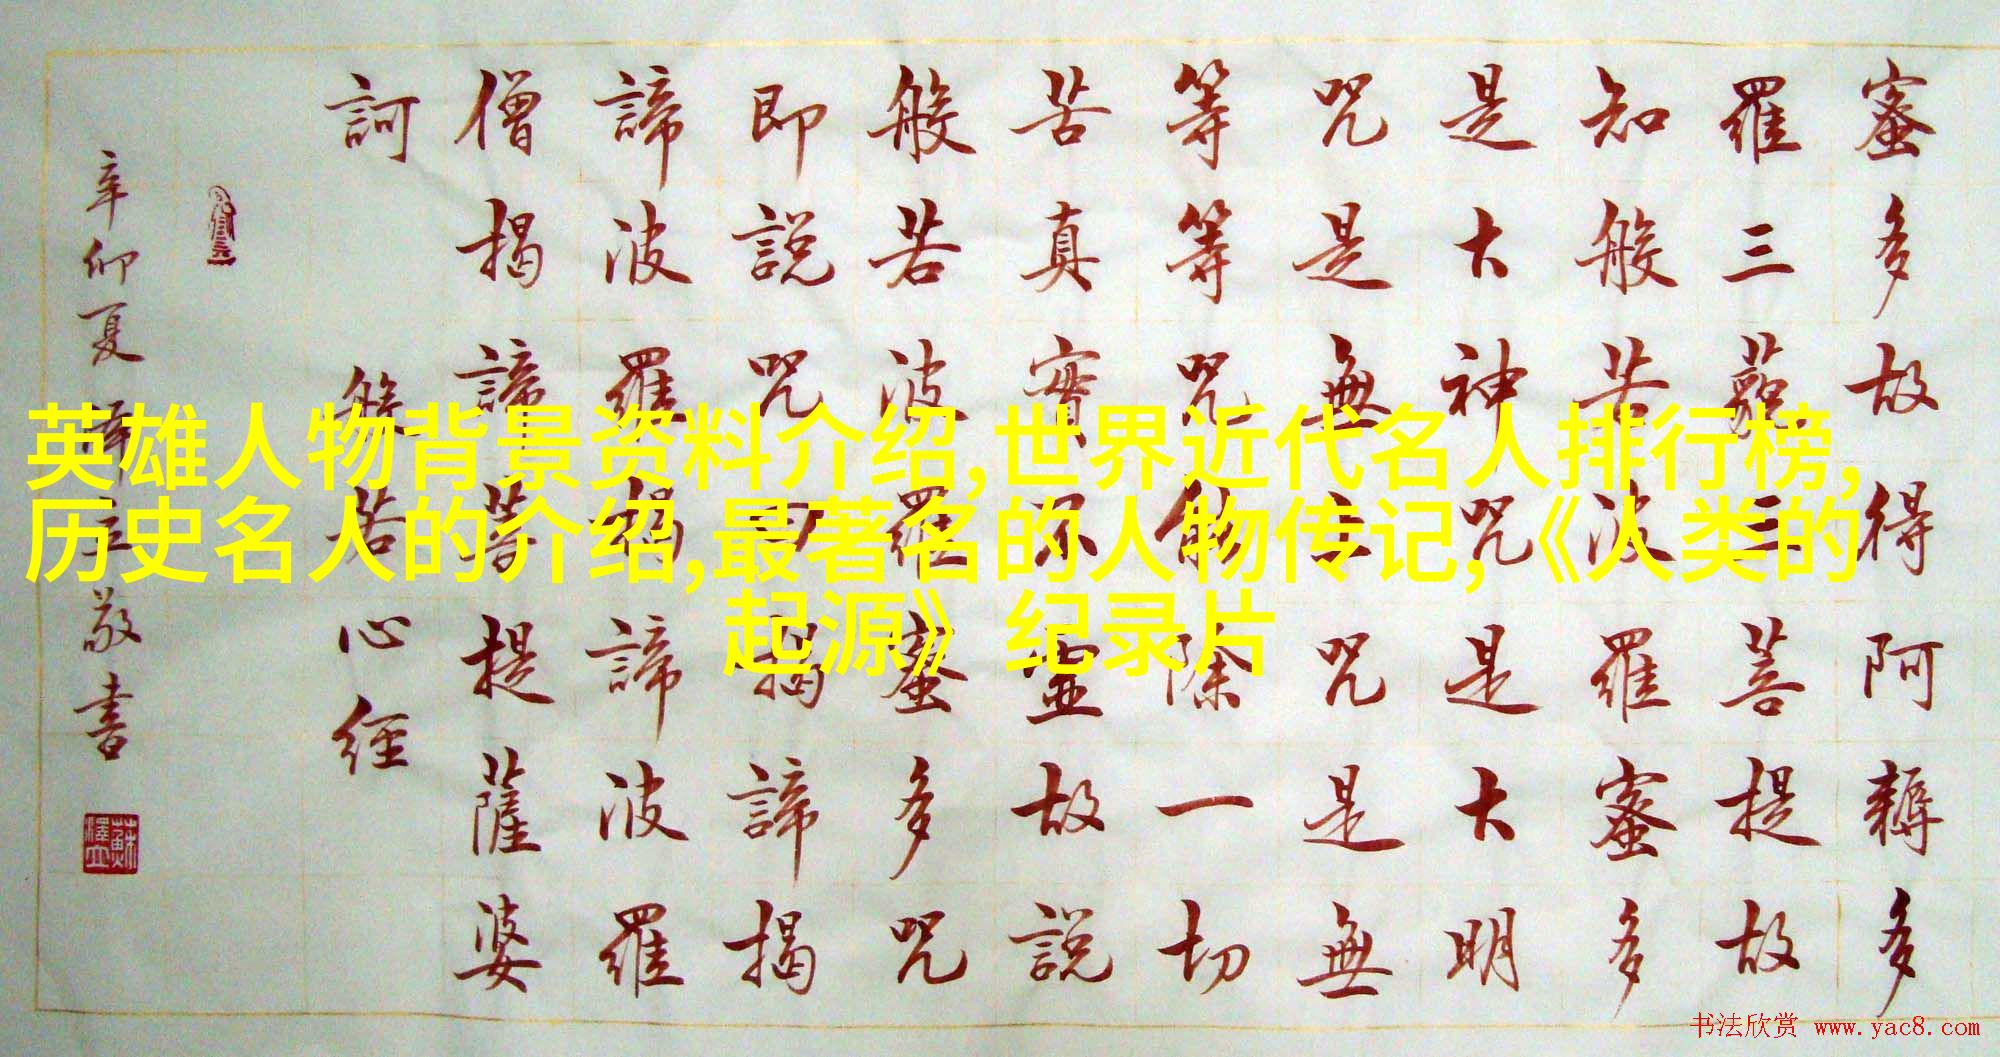 蜜多故得阿耨多
羅三藐三菩提故
知般若波羅蜜多
是大神咒是大明
咒是無上咒是無
等等咒能除一切
苦真實不虛故說
般若波羅蜜多咒
即說咒曰揭諦揭
諦波羅揭諦波羅
僧揭諦菩提薩婆
訶
般若心經
辛卯夏澤立敬書
英雄人物背景资料介绍,世界近代名人排行榜,
历史名人的介绍,最著名的人物传记,《人类的
起源》纪录片
书法欣赏 www.yac8.com